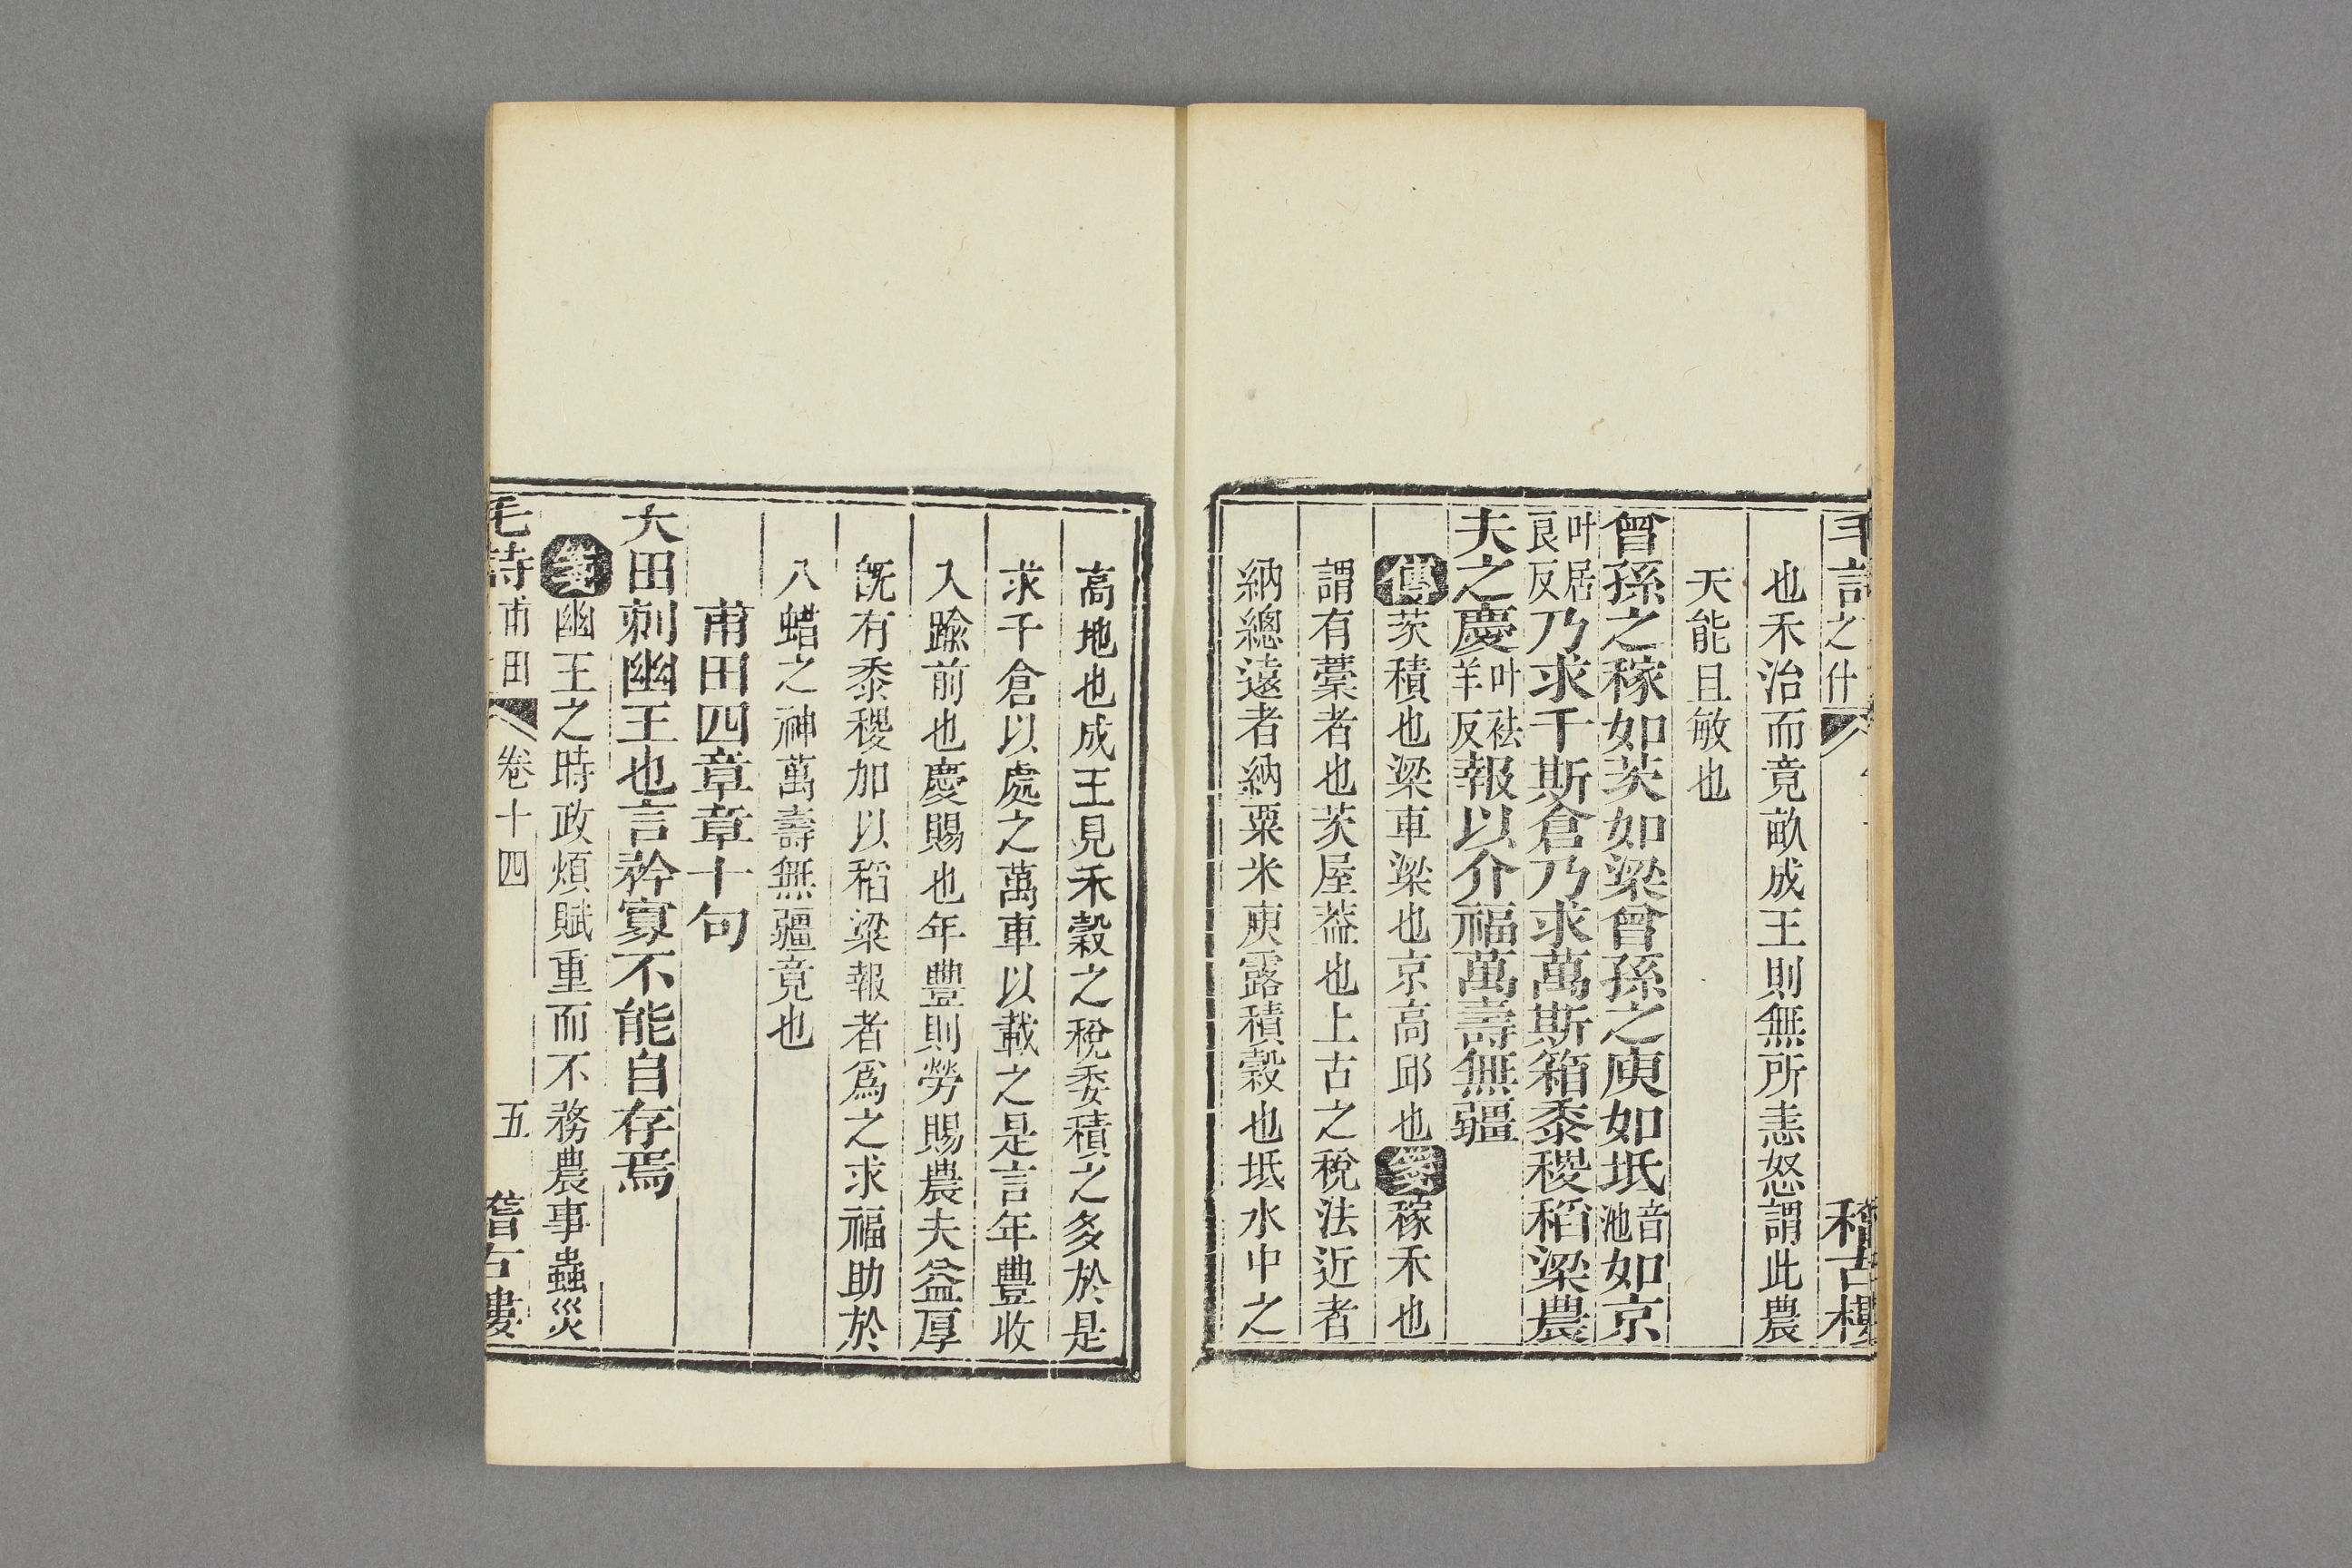 之什
稽古樓
也禾治而竟畝成王則無所恚怒謂此農
夫能且敏也
曾孫之稼如茨如梁曾孫之庾如坻音池如京
叶居良反乃求千斯倉乃求萬斯箱黍稷稻粱農
夫之慶叶袪羊反報以介福萬壽無疆
傳茨積也梁車梁也京高邱也箋稼禾也
謂有藁者也茨屋葢也上古之稅法近者
納總遠者納粟米庾露積穀也坻水中之
高地也成王見禾穀之稅委積之多於是
求千倉以處之萬車以載之是言年豐收
入踰前也慶賜也年豐則勞賜農夫益厚
旣有黍稷加以稻粱報者爲之求福助於
八蜡之神萬壽無疆竟也
甫田四章章十句
大田刺幽王也言矜寡不能自存焉
箋幽王之時政煩賦重而不務農事蟲災
毛詩 甫田 卷十四 五 稽古樓